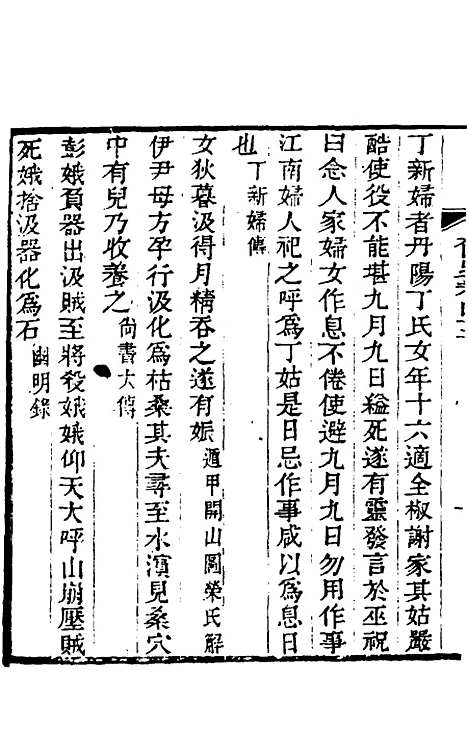 丁新婦者丹陽丁氏女年十六適全椒謝家其姑嚴
酷使役不能堪九月九日縊死遂有靈發言於巫祝
曰念人家婦女作息不倦使避九月九日勿用作事
江南婦人祀之呼爲丁姑是日忌作事咸以爲息日
也丁新婦傳
女狄暮汲得月精吞之遂有娠遁甲開山圖榮氏解
伊尹母方孕行汲化爲枯桑其夫尋至水濱見桑穴
中有兒乃收養之尚書大傳
彭娥負器出汲賊至將殺娥娥仰天大呼山崩壓賊
死娥捨汲器化爲石幽明錄